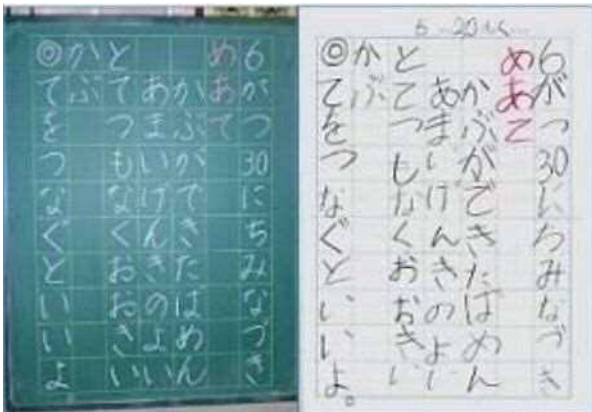 6がつ30にちみなづき
めあて
かぶができたばめん
あまいげんきのよい
とてつもなくおおきい
かぶ
◎てをつなぐといいよ
6がつ30にちみなづき
めあて
かぶができたばめん
あまいげんきのよい
とてつもなくおおきい
かぶ
◎てをつなぐといいよ。